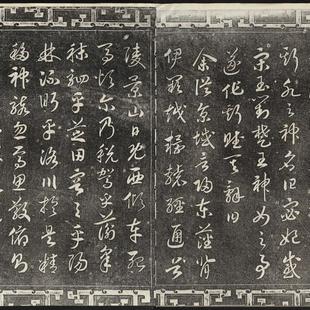 斯水之神名曰宓妃感
宋玉對楚王神女之事
遂作斯賦其辭曰
余從京域言歸東藩背
伊闕越轘轅經通谷
陵景山日既西傾車殆
馬煩爾乃稅駕乎蘅皋
秣駟乎芝田容與乎陽
林流眄乎洛川於是精
移神駭忽焉思散俯則